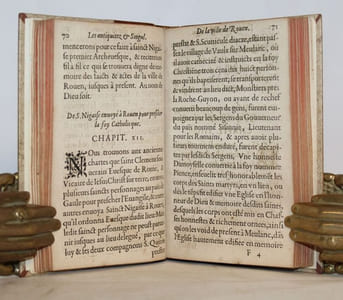 70 Les antiquitez & Singul.
mencerons pour ce faire à sainct Niga-
se premier Archeuesque, & recontinue
si à fil ce qui se trouvera digne demo-
ire des faicts & actes de la ville de
Rouen, iusques à present. Au nom de
Dieu soit.
De S. Nigase enuoyé à Rouen pour prescher
la foy Catholique.
CHAPIT. XII.
NOus trouuons aux anciennes
chartes que sainct Clement sou-
uerain Euesque de Rome, &
Vicaire de Iesus Christ sur terre, enuoya
plusieurs saincts personnages au païs de
Gaule pour prescher l'Euangile, & entre
autres enuoya Sainct Nigaise à Rouen,
qu'il ordonna Euesque dudit lieu: mais
ledit sainct personnage ne peut parue-
nir iusques au lieu delegué, par ce que
luy & ses deux compagnons S. Quirin
prestre
De la ville de Rouen. 71
prestre & S. Scuuicule diacre, estans pas-
sez le village de Vaulx sur Meulanc, ou
il auoit catechisé & instruicts en la foy
Chrestienne trois cens dixhuict person-
nes qu'ils baptiserent, se transporterent
& vindrent en vn lieu dict, Monstiers pres
la Roche-Guyon, ou auant de rechef
conuerty beaucoup de gens, furent em-
poignez par les Sergens du Gouuerneur
du païs nommé Sisinnie, Lieutenant
pour les Romains, & apres plusieurs
tourmens endurez, furent decapitez
par lesdicts Sergens. Vne honneste
Damoyselle conuertie à la foy nommee
Pience, enseuelit treshonorablement les
corps des Saincts martyrs, en vn lieu, ou
dés le temps fit edifier vne Eglise en l'hon-
neur de Dieu & memoire desdits saincts,
desquels les corps ont esté mis en Chas-
ses honnestes & richement ornées, ainsi
qu'on les void de present à Meulanc, dans
l'Eglise hautement edifiee en memoire
F 4